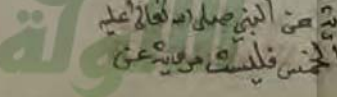 عن النبي صلى الله تعالى عليه
الخمس فليست مروية عن